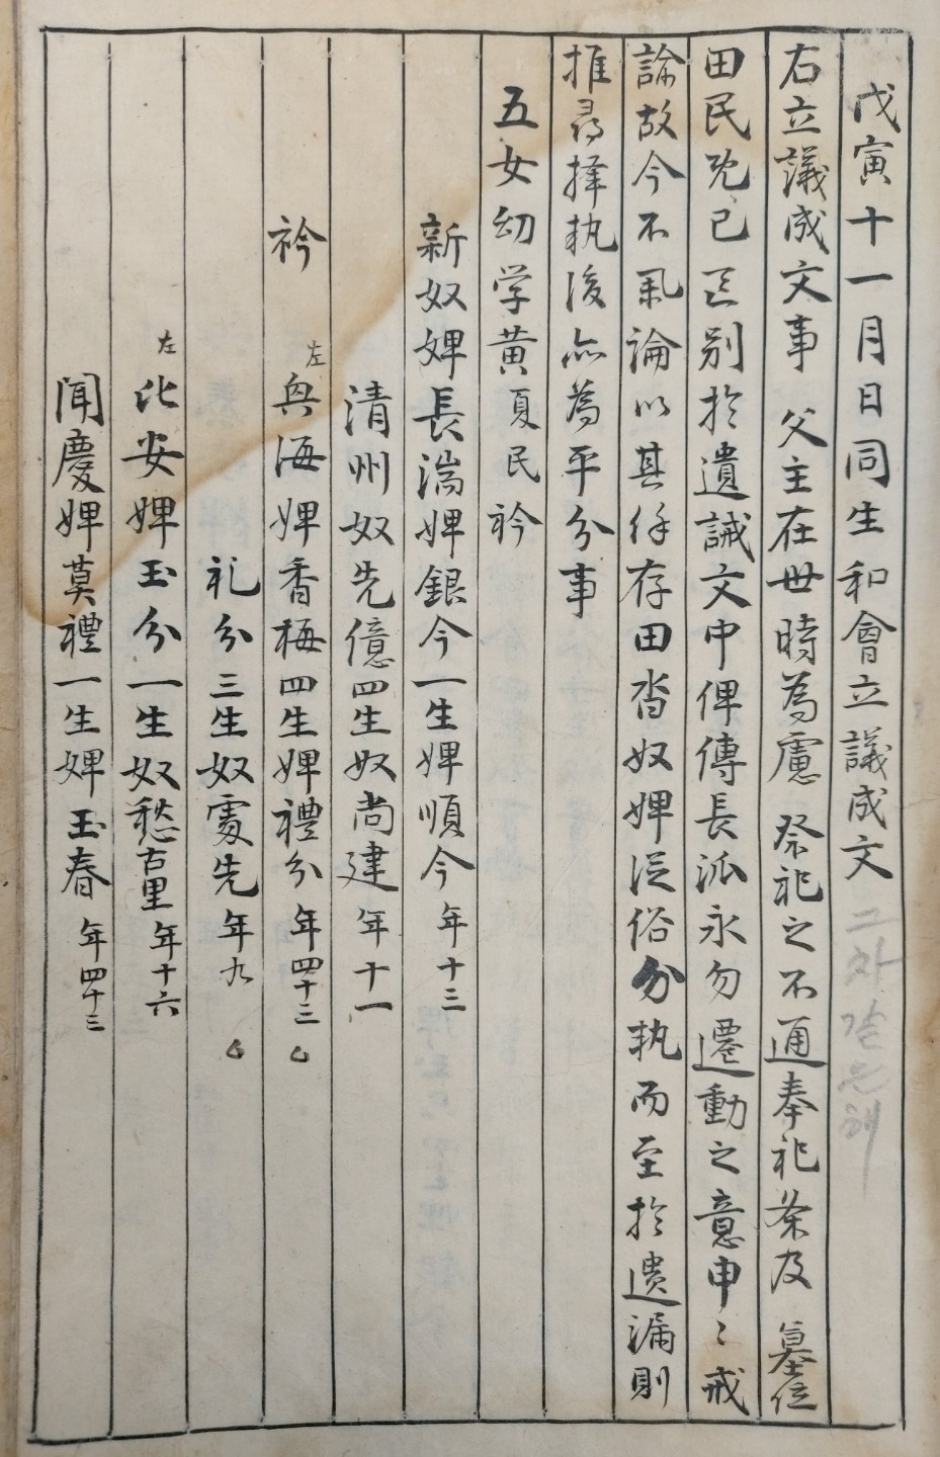 戊寅十一月日同生和會立議成文 그차같은해
右立議成文事 父主在世時為慮 祭祀之不通奉祀条及 墓位
田民既已区別於遺誡文中俾傳長派永勿遷動之意申〻戒
諭故今不氣論以其余存田畓奴婢従俗分執而至於遺漏則
推尋擇執後亦為平分事
五女幼学黄夏民衿
新奴婢長湍婢銀今一生婢順今年十三
清州奴先億四生奴尚建年十一
衿 左 興海婢香梅四生婢禮分年四十三
礼分三生奴處先年九
左 化安婢玉分一生奴愁古里年十六
聞慶婢莫禮一生婢玉春年四十三